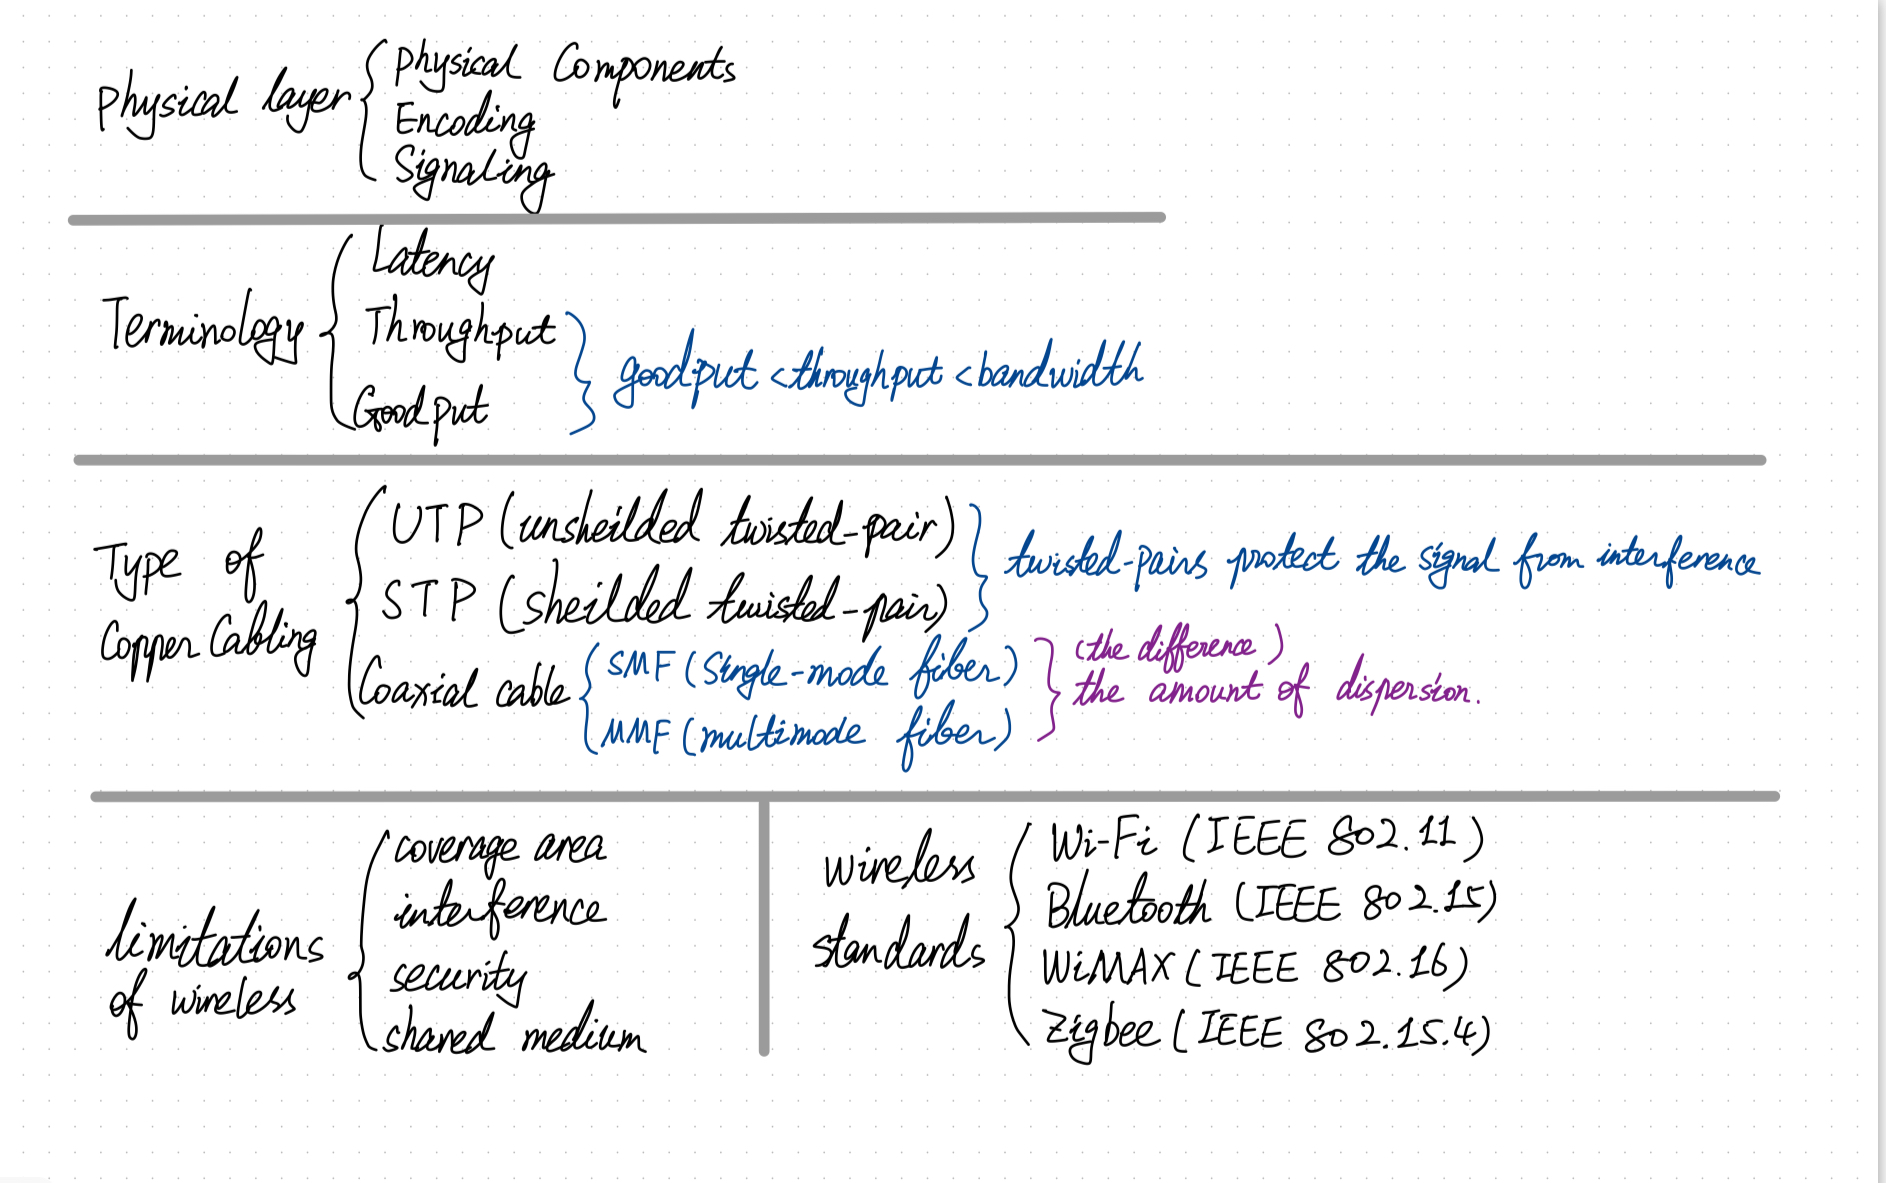 Physical layer
Physical Components
Encoding
Signaling
Terminology
Latency
Throughput
Goodput
goodput < throughput < bandwidth
Type of
Copper Cabling
UTP (unsheilded twisted-pair)
STP (sheilded twisted-pair)
twisted-pairs protect the signal from interference
Coaxial cable
SMF (Single-mode fiber)
MMF (multimode fiber)
(the difference)
the amount of dispersion.
limitations
of wireless
coverage area
interference
security
shared medium
wireless
standards
Wi-Fi (IEEE 802.11)
Bluetooth (IEEE 802.15)
WiMAX (IEEE 802.16)
Zigbee (IEEE 802.15.4)